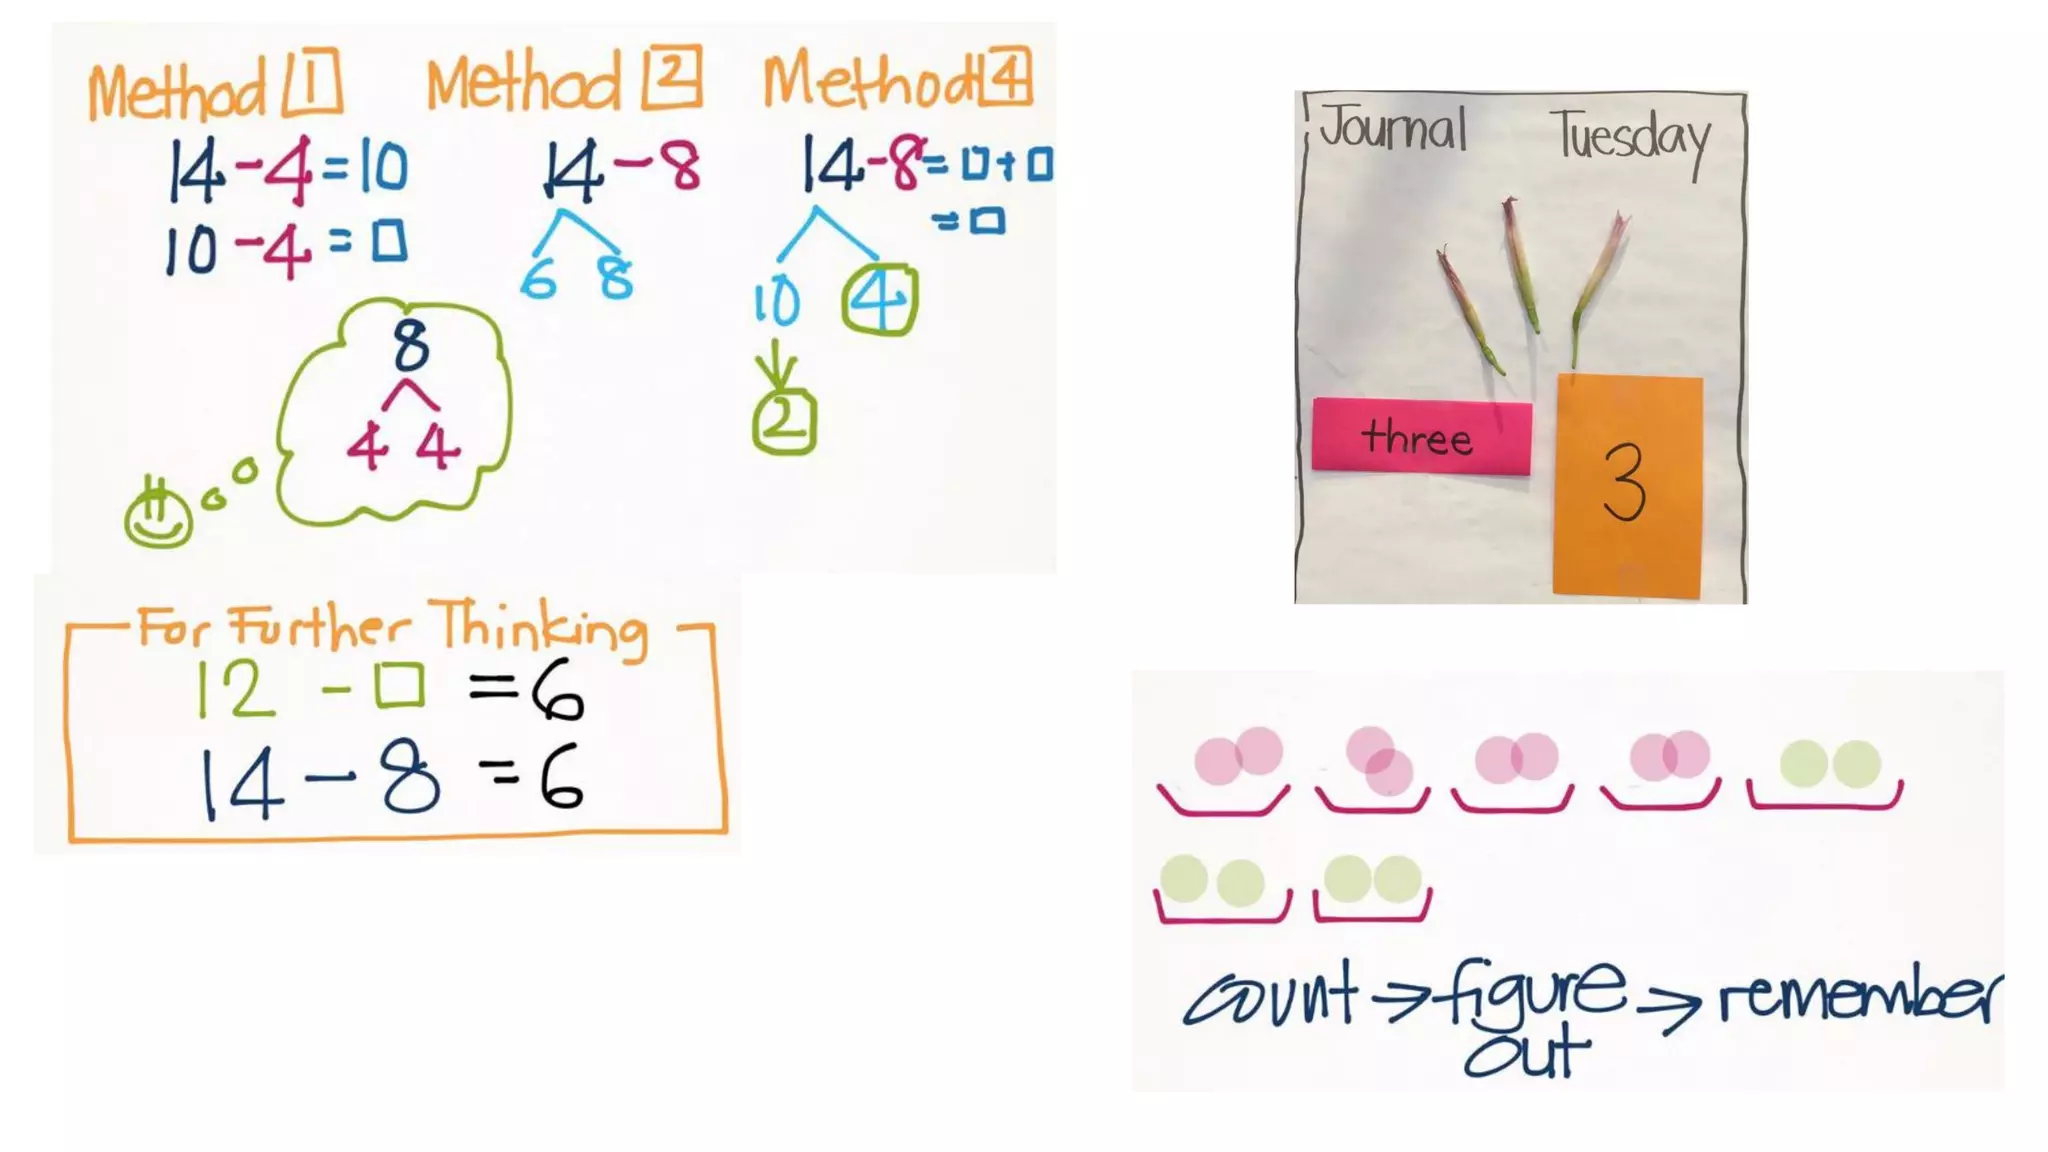 Method 1
14-4=10
10-4=□
8
4 4
Method 2
14-8
6 8
Method 4
14-8=□+□
=□
10 4
2
For Further Thinking
12 -□ =6
14-8 =6
Journal Tuesday
three
3
count→figure→remember
out